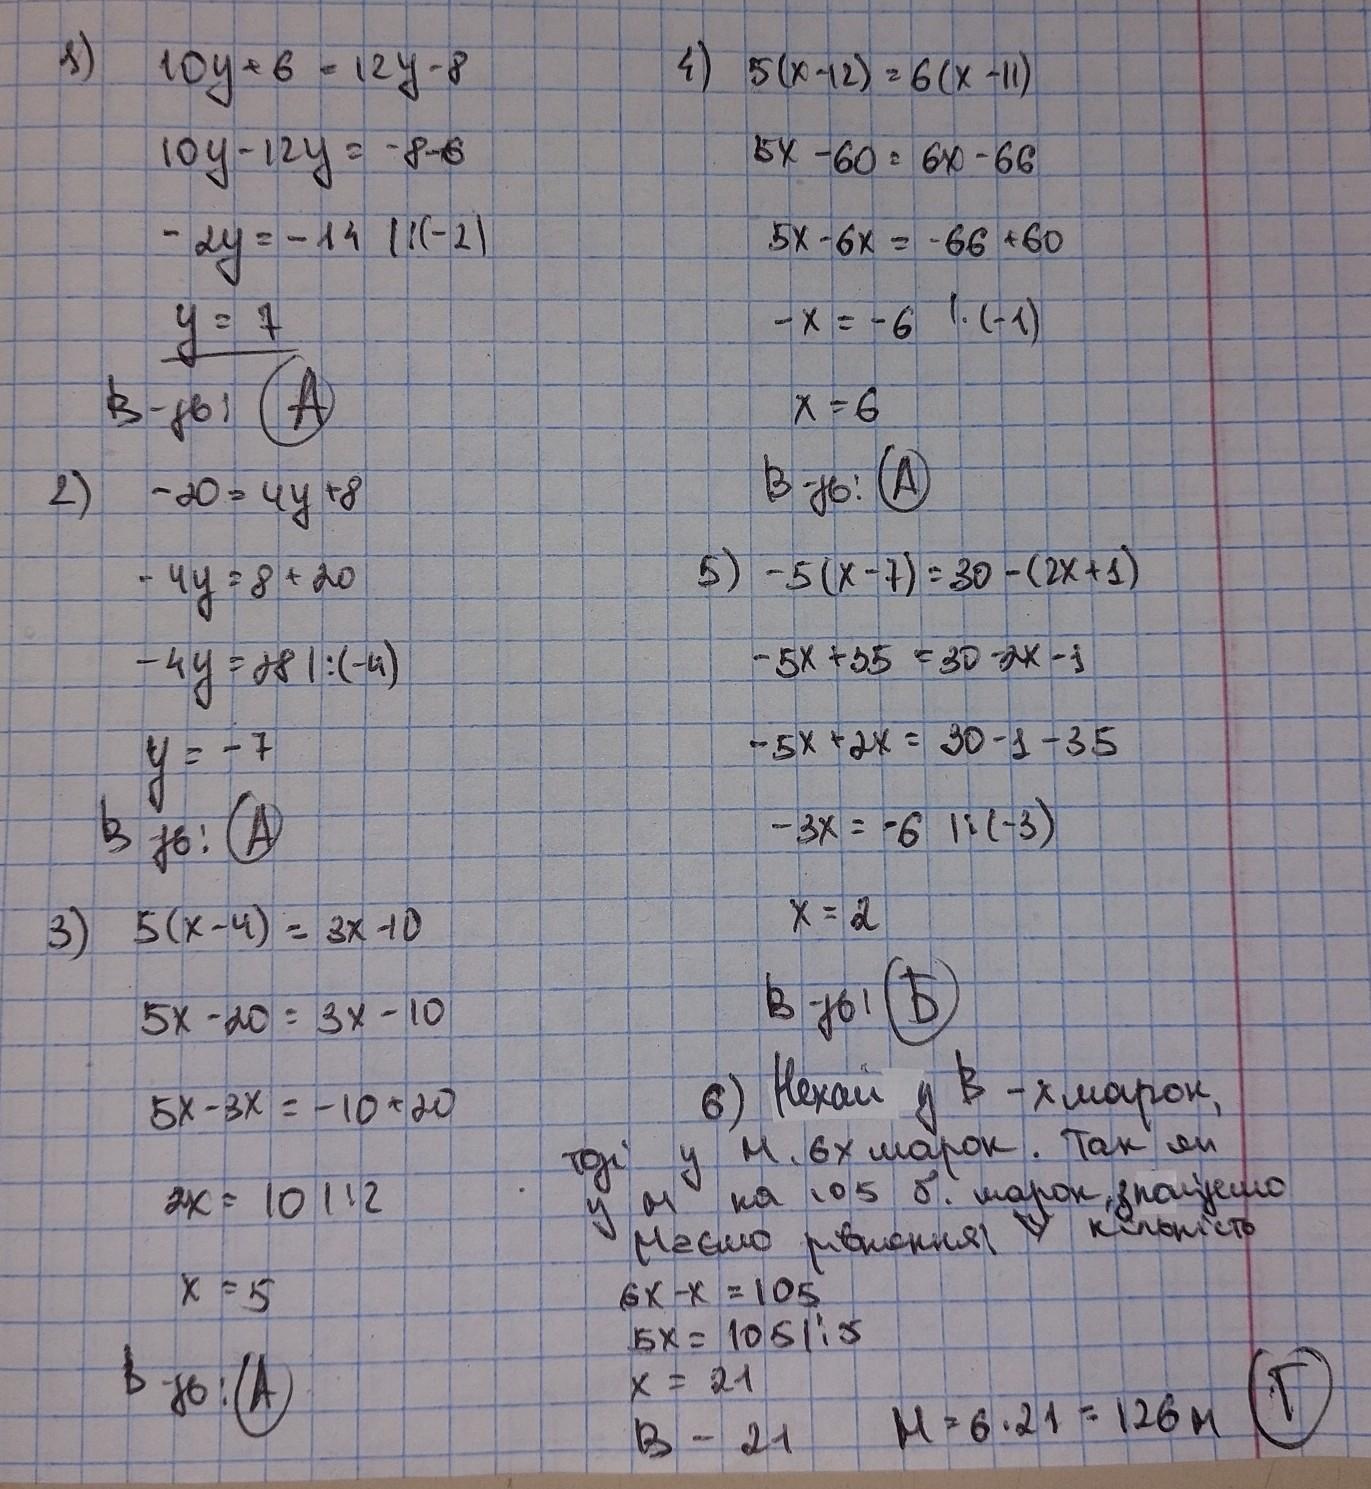 1) 10y+6 = 12y-8
10y-12y = -8-6
-2y = -14 |:(-2)
y = 7
В-дь: А
2) -20 = 4y+8
-4y = 8+20
-4y = 28 |:(-4)
y = -7
В дь: А
3) 5(x-4) = 3x-10
5x-20 = 3x-10
5x-3x = -10+20
2x = 10 |:2
x = 5
В-дь: А
4) 5(x-12) = 6(x-11)
5x-60 = 6x-66
5x-6x = -66+60
-x = -6 |·(-1)
x = 6
В-дь: А
5) -5(x-7) = 30-(2x+1)
-5x+35 = 30-2x-1
-5x+2x = 30-1-35
-3x = -6 |:(-3)
x = 2
В-дь: Б
6) Нехай у В - x марок,
тоді у М. 6x марок. Так як
у М на 105 б. марок, знайдемо
Маємо рівняння: кількість
6x-x = 105
5x = 105 |:5
x = 21
В - 21 М = 6·21 = 126 м Г